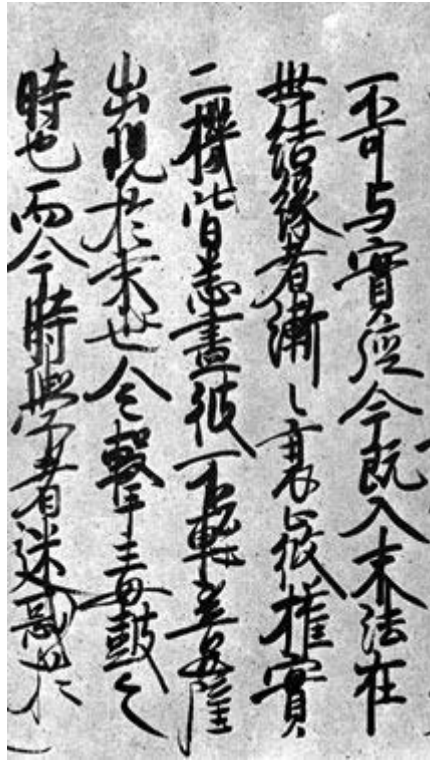 不可与實經今既入末法在
世結縁者漸々衰微權實
二機皆悉盡彼不軽菩薩
出現於末世令撃毒鼓之
時也而今時學者迷惑於